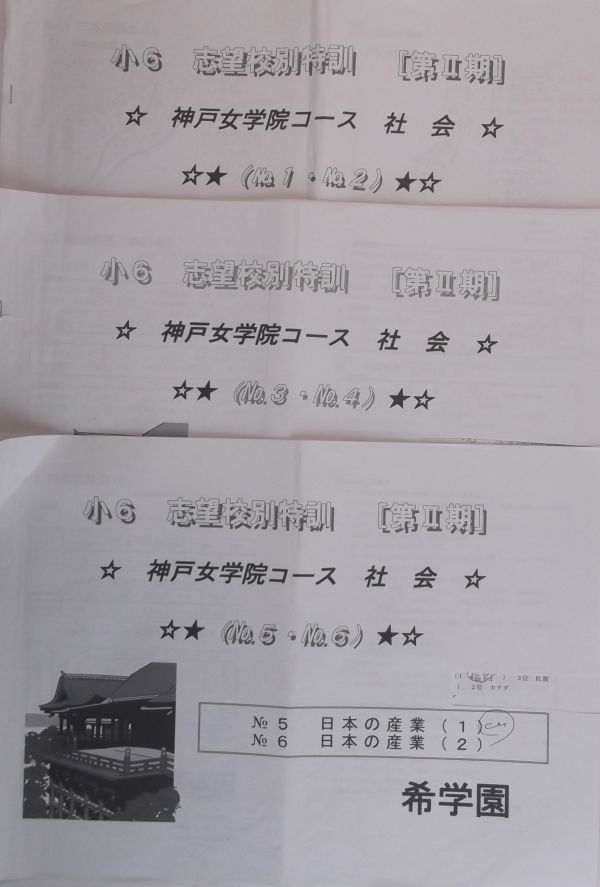 小6 志望校別特訓 [第Ⅱ期]
☆ 神戸女学院コース 社 会 ☆
☆★ (№1・№2) ★☆
小6 志望校別特訓 [第Ⅱ期]
☆ 神戸女学院コース 社 会 ☆
☆★ (№3・№4) ★☆
小6 志望校別特訓 [第Ⅱ期]
☆ 神戸女学院コース 社 会 ☆
☆★ (№5・№6) ★☆
) 3位 佐賀
) 2位 カナダ
№5 日本の産業(1)
№6 日本の産業(2)
希学園